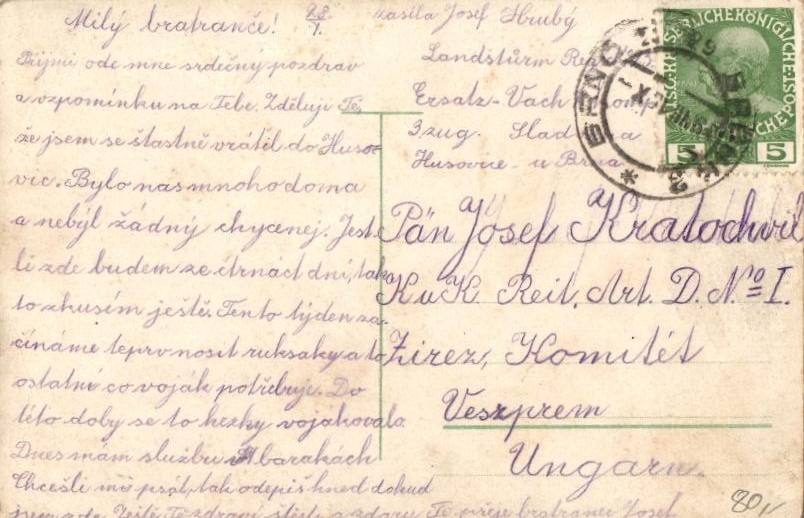 Milý bratranče! 28/1.
Přijmi ode mne srdečný pozdrav
a vzpomínku na Tebe. Zděluji Ti,
že jsem se štastně vrátil do Huso-
vic. Bylo nas mnoho doma
a nebyl žádný chycenej. Jest-
li zde budem ze čtrnáct dní, tak
to zkusím ještě. Tento týden za-
čínáme teprv nosit ruksaky a to
ostatní co voják potřebuje. Do
této doby se to hezky vojakovalo.
Dnes mám službu v barakách
Chceš-li mě psát, tak odepiš hned dokud
jsem zde. Ještě Ti zdraví štěstí a zdaru Ti přeje bratranec Josef
zasílá Josef Hrubý
Landstürm Reg.
Ersatz-Vach Komp.
3. zug.
Husovice - u Brna
Pán Josef Kratochvíl
K u K. Reit. Art. D. No I.
Zirez, Komitét
Veszprem
Ungarn.
BRNO
5 5
80,-